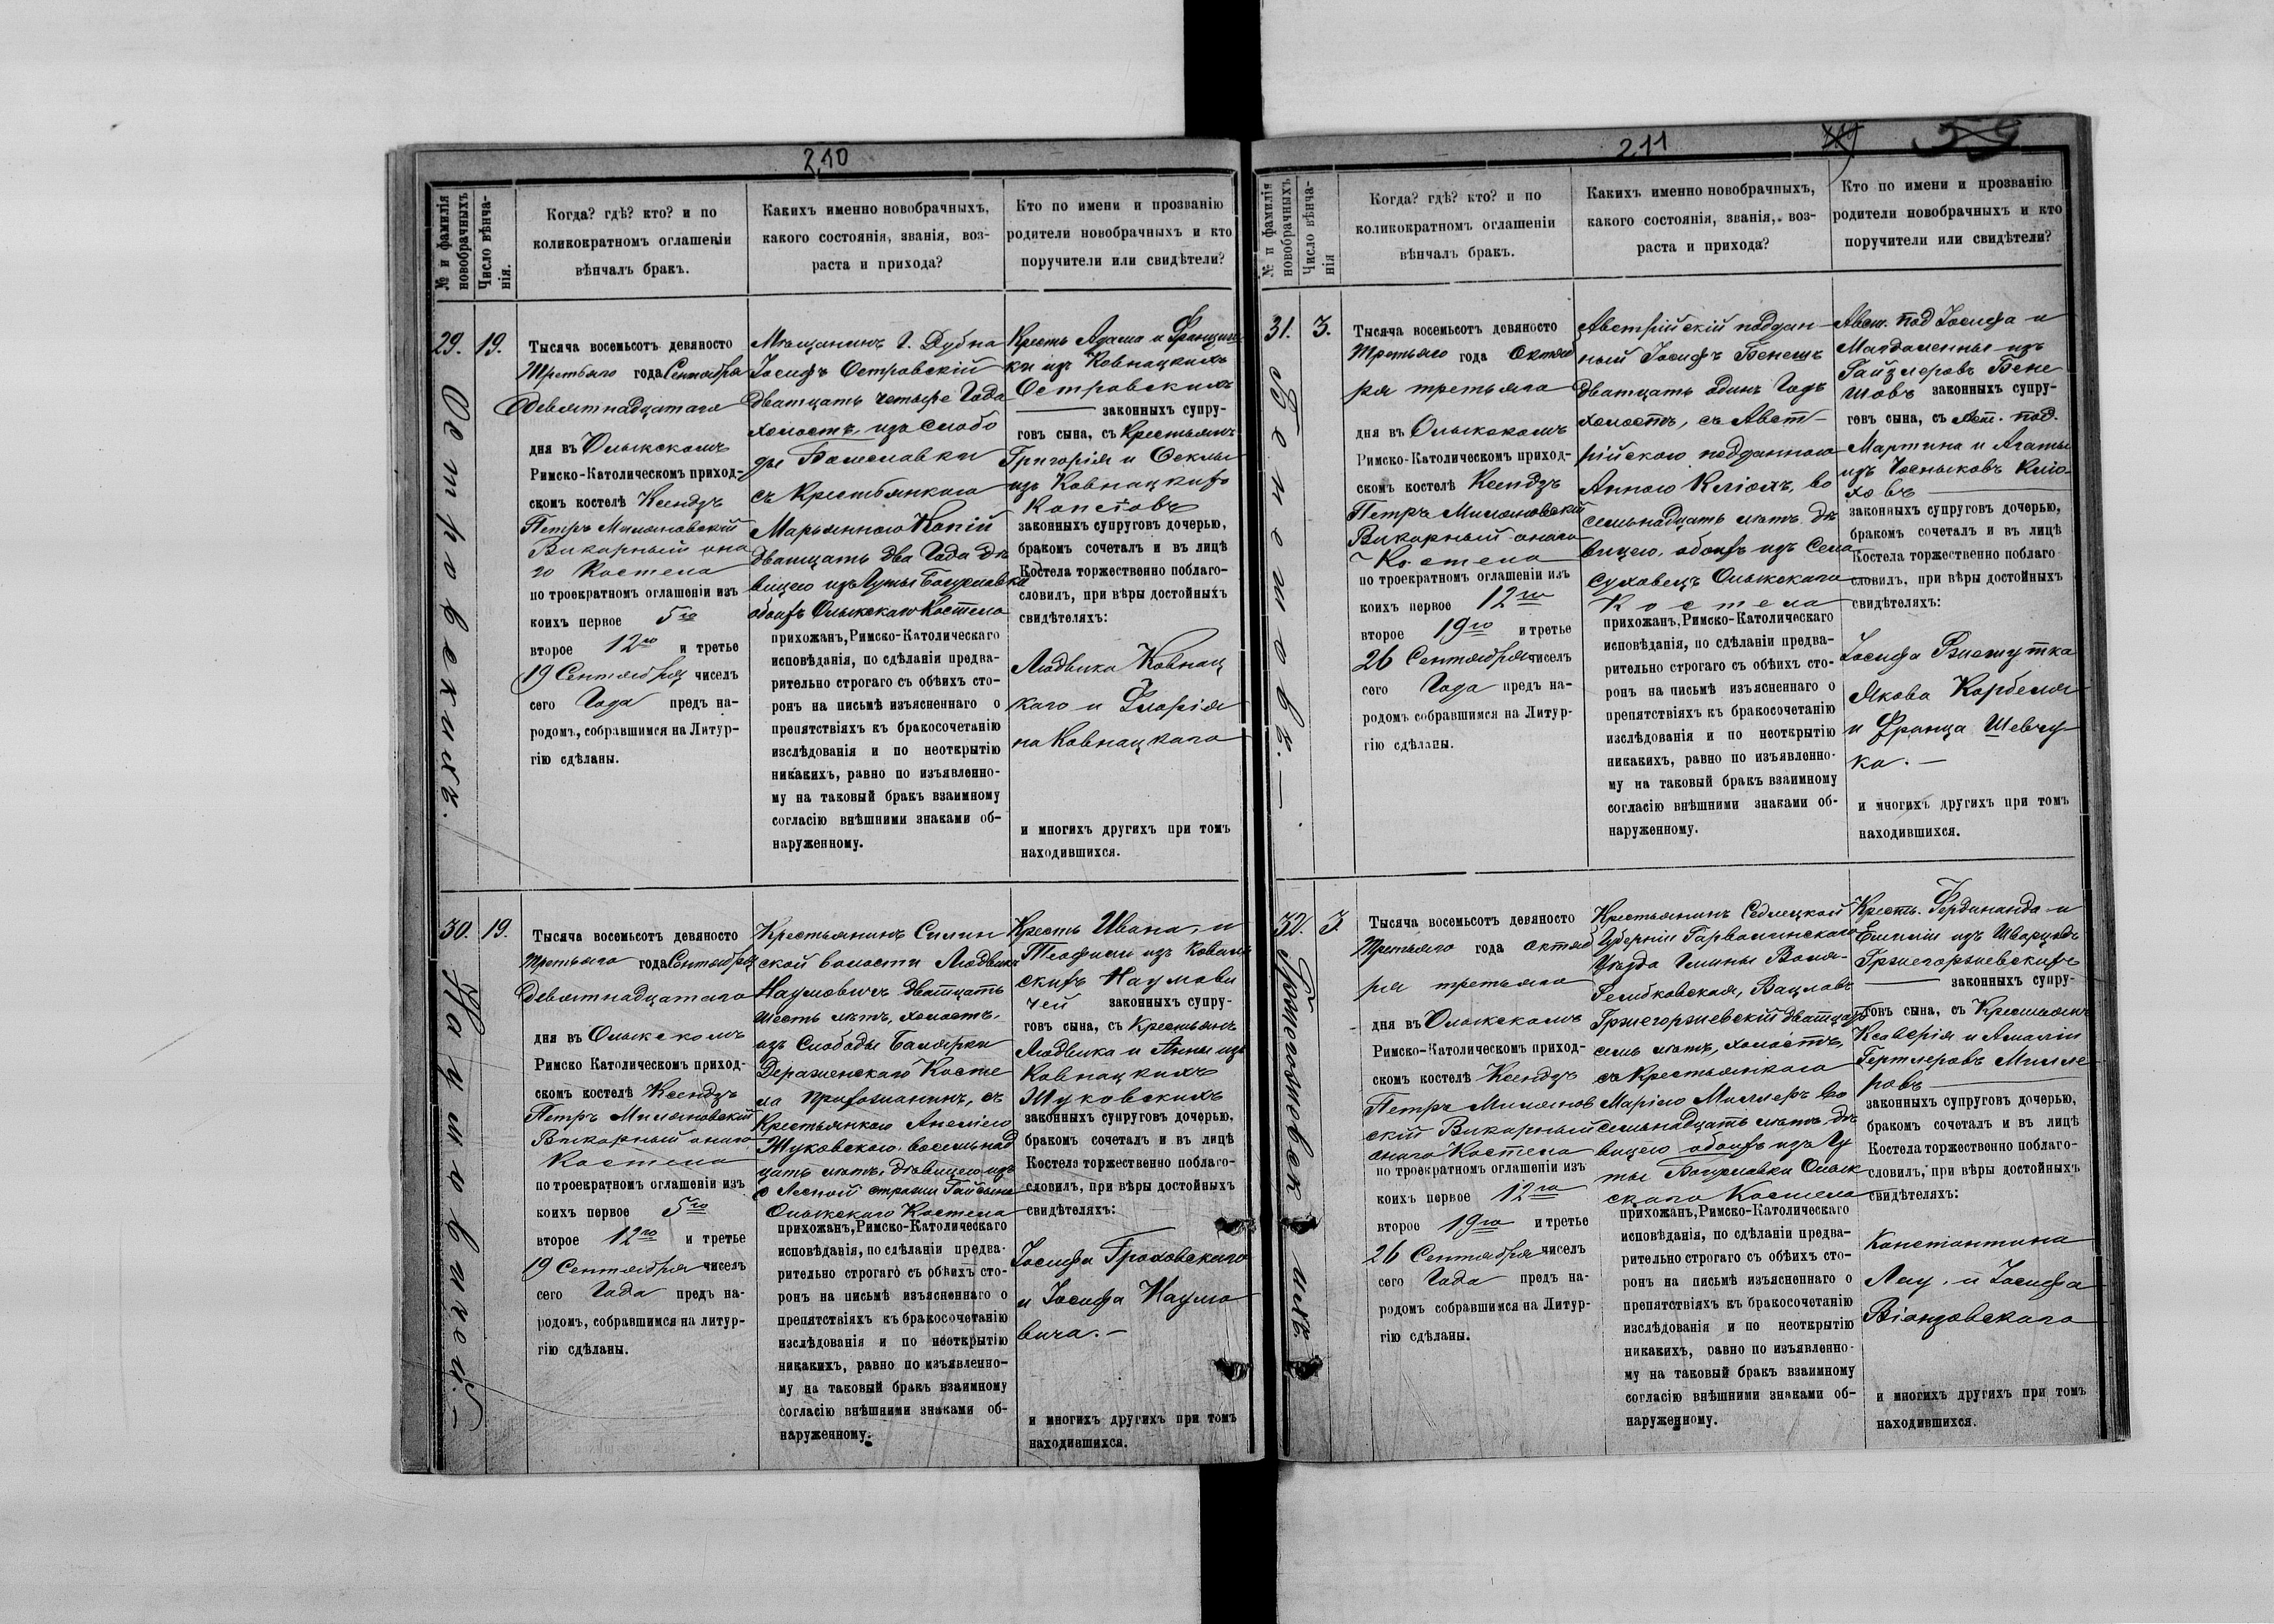 210
№ и фамилія
новобрачныхъ
Число вѣнча-
нія.
Когда? гдѣ? кто? и по
коликократномъ оглашеніи
вѣнчалъ бракъ.
Какихъ именно новобрачныхъ,
какого состоянія, званія, воз-
раста и прихода?
Кто по имени и прозванію
родители новобрачныхъ и кто
поручители или свидѣтели?
29.
Островскихъ.
19.
Тысяча восемьсотъ девяносто
третьяго года Сентября
Девятнадцатаго
дня въ Олыкскомъ
Римско-Католическомъ приход-
скомъ костелѣ Ксендзъ
Петръ Миляновскій
Викарный она
го Костела
по троекратномъ оглашеніи изъ
коихъ первое 5го
второе 12го и третье
19 Сентября чиселъ
сего Года предъ на-
родомъ, собравшимся на Литур-
гію сдѣланы.
Мѣщанинъ г. Дубна
Іосифъ Островскій
Двадцать четыре Года
холостъ, изъ слобо
ды
съ Крестьянкою
Марьянною Копій
Двадцать два Года дѣ
вицею изъ Гуты Богуславки
обоихъ Олыкскаго Костела
прихожанъ, Римско-Католическаго
исповѣданія, по сдѣланіи предва-
рительно строгаго съ обѣихъ сто-
ронъ на письмѣ изъясненнаго о
препятствіяхъ къ бракосочетанію
изслѣдованія и по неоткрытію
никакихъ, равно по изъявленно-
му на таковый бракъ взаимному
согласію внѣшними знаками об-
наруженному.
Кресть Адама и Францыш
ки изъ Ковнацкихъ
Островскихъ
законныхъ супру-
говъ сына, съ Крестьянъ
Григорія и Феклы
изъ Ковнацкихъ
Копіовъ
законныхъ супруговъ дочерью,
бракомъ сочеталъ и въ лицѣ
Костела торжественно поблаго-
словилъ, при вѣры достойныхъ
свидѣтеляхъ:
Людвика Ковнац
каго и Флорія
на Ковнацкаго
и многихъ другихъ при томъ
находившихся.
30.
Наумовичей.—
19.
Тысяча восемьсотъ девяносто
третьяго года Сентября
Девятнадцатаго
дня въ Олыкскомъ
Римско Католическомъ приход-
скомъ костелѣ Ксендзъ
Петръ Миляновскій
Викарный онаго
Костела
по троекратномъ оглашеніи изъ
коихъ первое 5го
второе 12го и третье
19 Сентября чиселъ
сего Года предъ на-
родомъ, собравшимся на литур-
гію сдѣланы.
Крестьянинъ Силин
ской волости Людвикъ
Наумовичъ двадцать
шесть лѣтъ, холостъ,
изъ Слободы Балярки
Деражненскаго Косте
ла прихожанинъ, съ
Крестьянкою Анеліею
Жуковскою восемьнад
цать лѣтъ, дѣвицею изъ
Лесной стражи
Олыкскаго Костела
прихожанъ, Римско-Католическаго
исповѣданія, по сдѣланіи предва-
рительно строгаго съ обѣихъ сто-
ронъ на письмѣ изъясненнаго о
препятствіяхъ къ бракосочетанію
изслѣдованія и по неоткрытію
никакихъ, равно по изъявленно-
му на таковый бракъ взаимному
согласію внѣшними знаками об-
наруженному.
Кресть Ивана, и
Теофили изъ
Наумови
чей законныхъ супру-
говъ сына, съ Крестьянъ
Людвика и Анны изъ
Ковнацкихъ
Жуковскихъ
законныхъ супруговъ дочерью,
бракомъ сочеталъ и въ лицѣ
Костела торжественно поблаго-
словилъ, при вѣры достойныхъ
свидѣтеляхъ:
Іосифа Гроховскаго
и Іосифа Наумо
вича.—
и многихъ другихъ при томъ
находившихся.
211
59
№ и фамилія
новобрачныхъ
Число вѣнча-
нія
Когда? гдѣ? кто? и по
коликократномъ оглашеніи
вѣнчалъ бракъ.
Какихъ именно новобрачныхъ,
какого состоянія, званія, воз-
раста и прихода?
Кто по имени и прозванію
родители новобрачныхъ и кто
поручители или свидѣтели?
31.
Бенешовъ.—
3.
Тысяча восемьсотъ девяносто
третьяго года Октяб
ря третьяго
дня въ Олыкскомъ
Римско-Католическомъ приход-
скомъ костелѣ Ксендзъ
Петръ Миляновскій
Викарный онаго
Костела
по троекратномъ оглашеніи изъ
коихъ первое 12го
второе 19го и третье
26 Сентября чиселъ
сего Года предъ на-
родомъ собравшимся на Литур-
гію сдѣланы.
Австрійскій поддан
ный Іосифъ Бенешъ
двадцать одинъ Годъ
холостъ, съ Авст-
рійскою подданною
Анною Кліохъ, во
семьнадцать лѣтъ дѣ
вицею, обоихъ изъ Села
Суховецъ Олыкскаго
Костела
прихожанъ, Римско-Католическаго
исповѣданія, по сдѣланіи предва-
рительно строгаго съ обѣихъ сто-
ронъ на письмѣ изъясненнаго о
препятствіяхъ къ бракосочетанію
изслѣдованія и по неоткрытію
никакихъ, равно по изъявленно-
му на таковый бракъ взаимному
согласію внѣшними знаками об-
наруженному.
Авст. под Іосифа и
Магдалены изъ
Гайзлеровъ Бене
шовъ законныхъ супру-
говъ сына, съ Авст. под.
Мартина и Агаты
изъ Кліо
ховъ
законныхъ супруговъ дочерью,
бракомъ сочеталъ и въ лицѣ
Костела торжественно поблаго
словилъ, при вѣры достойныхъ
свидѣтеляхъ:
Іосифа
Якова Карбеля
и Франца Шевчу
ка.—
и многихъ другихъ при томъ
находившихся.
32.
Гржегоржевскихъ.
3.
Тысяча восемьсотъ девяносто
третьяго года Октяб
ря третьяго
дня въ Олыкскомъ
Римско-Католическомъ приход-
скомъ костелѣ Ксендзъ
Петръ Милянов
скій Викарный
онаго Костела
по троекратномъ оглашеніи изъ
коихъ первое 12го
второе 19го и третье
26 Сентября чиселъ
сего Года предъ на-
родомъ собравшимся на Литур-
гію сдѣланы.
Крестьянинъ Седлецкой
Губерніи Гарволинскаго
Уѣзда Гмины Воля-
Ренбковская, Вацлавъ
Гржегоржевскій двадцать
семь лѣтъ, холостъ,
съ Крестьянкою
Маріею Миллеръ во
семьнадцать лѣтъ дѣ
вицею обоихъ изъ Гу
ты Богуславки Олык
скаго Костела
прихожанъ, Римско-Католическаго
исповѣданія, по сдѣланіи предва-
рительно строгаго съ обѣихъ сто-
ронъ на письмѣ изъясненнаго о
препятствіяхъ къ бракосочетанію
изслѣдованія и по неоткрытію
никакихъ, равно по изъявленно-
му на таковый бракъ взаимному
согласію внѣшними знаками об-
наруженному.
Кресть. Фердинанда и
Емиліи изъ Шварцовъ
Гржегоржевскихъ
законныхъ супру-
говъ сына, съ Крестьянъ
Ксаверія и Амаліи
Гертлеровъ Милле
ровъ
законныхъ супруговъ дочерью,
бракомъ сочеталъ и въ лицѣ
Костела торжественно поблаго-
словилъ, при вѣры достойныхъ
свидѣтеляхъ:
Константина
Лау, и Іосифа
Віонзовскаго
и многихъ другихъ при томъ
находившихся.